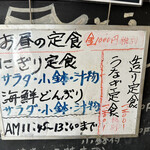 お昼の定食
にぎり定食
サラダ・小鉢・汁物
海鮮どんぶり
サラダ・小鉢・汁物
AM11:45-13:60まで
全1000円
造り定食
うなぎ定食